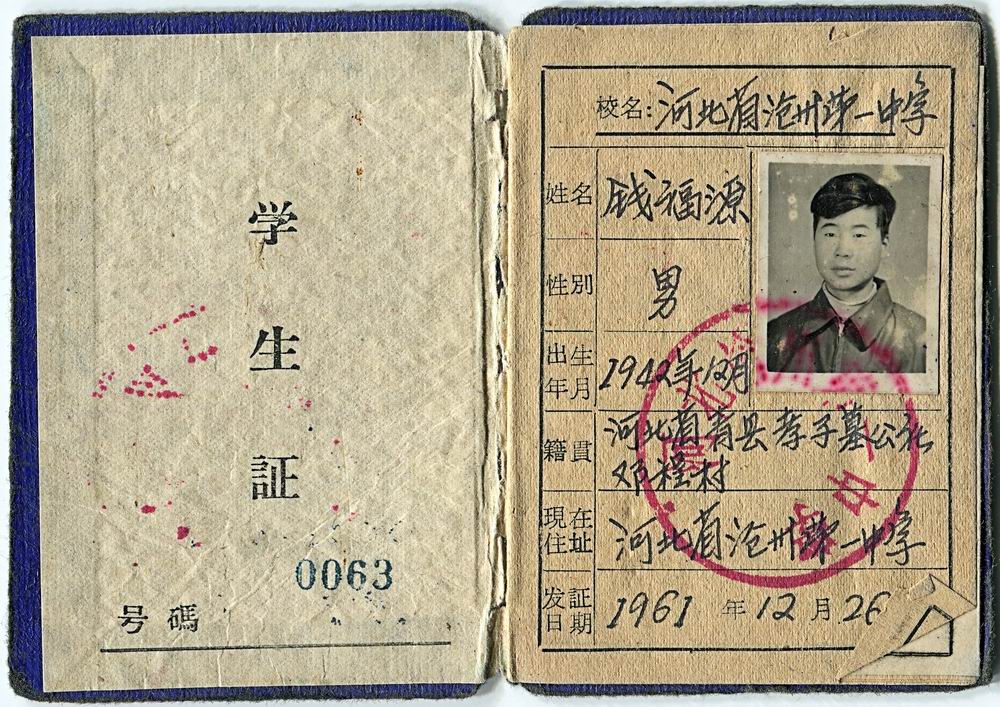 学
生
証
号碼 0063
校名:河北省沧州第一中学
姓名 钱福源
性别 男
出生年月 1942年12月
籍貫 河北省青县孝子墓公社
邓庄村
現在住址 河北省沧州第一中学
发証日期 1961年12月26